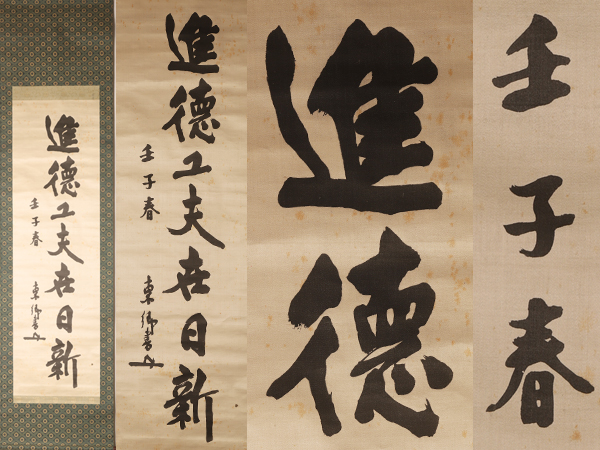 進德工夫在日新
壬子春
東郷書
進德工夫在日新
壬子春
東郷書
進德
壬子春